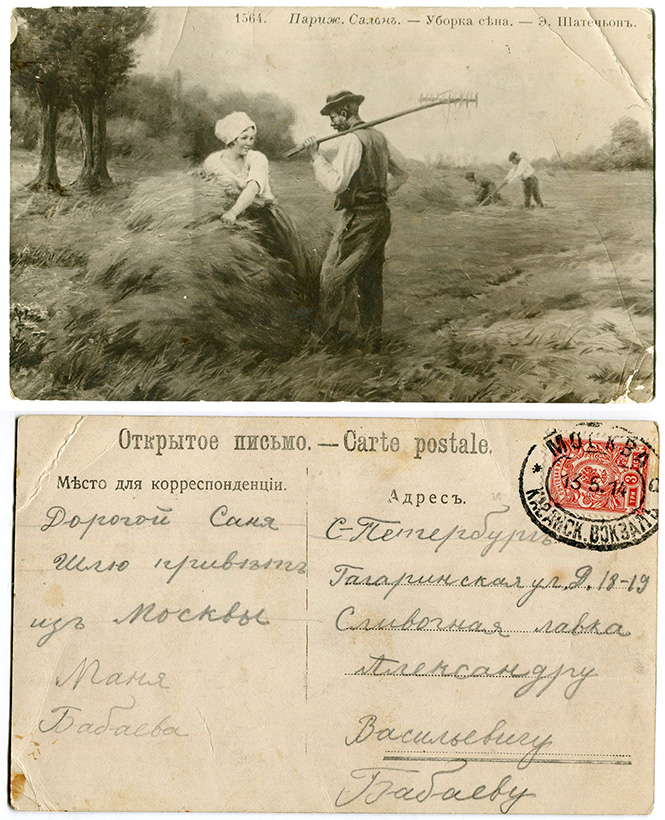 1564. Париж. Салонъ. — Уборка сѣна. — Э. Шатеньонъ.
Открытое письмо. — Carte postale.
Мѣсто для корреспонденціи.
Дорогой Саня
Шлю приветъ
изъ Москвы
Маня
Бабаева
Адресъ.
С-Петербургъ
Гагаринская ул. Д. 18-19
Сливочная лавка
Александру
Васильевичу
Бабаеву
МОСКВА
13.5.14
ВОКЗАЛЪ